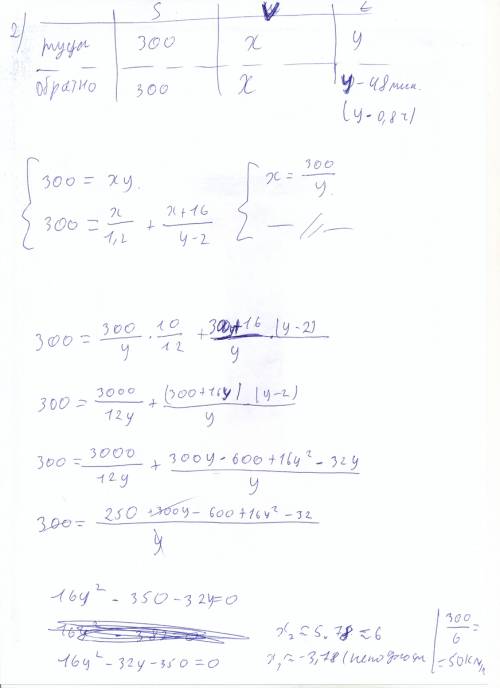 2)
S V t
туда 300 x y
обратно 300 x y - 48 мин.
(y - 0,8 ч)
300 = xy.
300 = x/1,2 + x+16/y-2
x = 300/y.
— // —
300 = 300/y · 10/12 + (y-2)/y
300 = 3000/12y + (300+16y) (y-2)/y
300 = 3000/12y + 300y - 600 + 16y² - 32y/y
300 = 250 + 300y - 600 + 16y² - 32/y
16y² - 350 - 32y = 0
16y² - 32y - 350 = 0
x₂ ≈ 5.78 ≈ 6
x₁ ≈ -3,78
300/6 =
= 50 км/ч